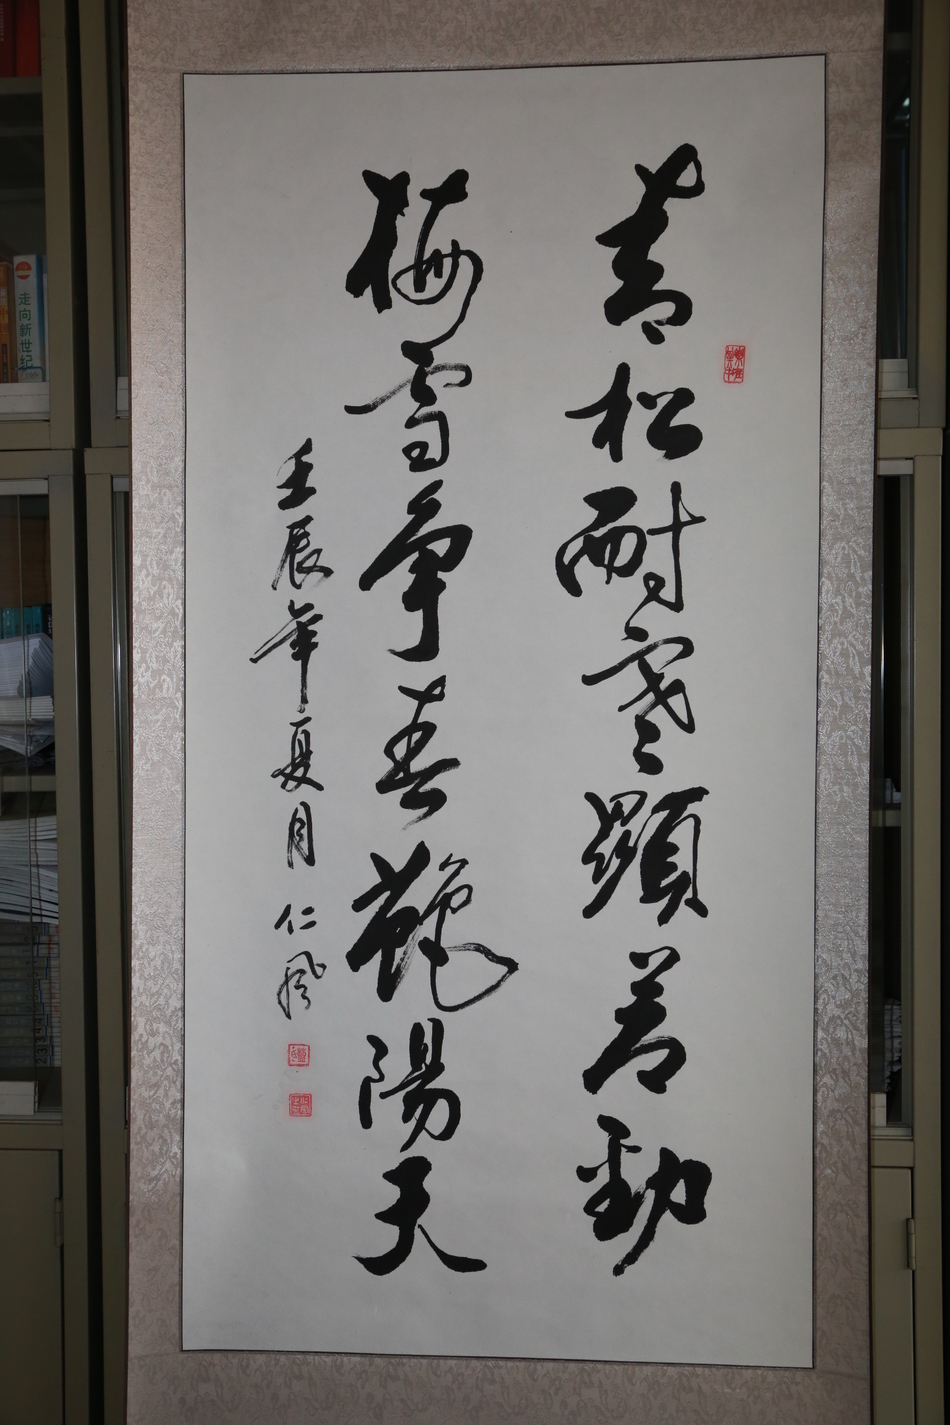 青松耐寒顯蒼勁
梅雪争春艷陽天
壬辰年夏月 仁風
走向新世纪